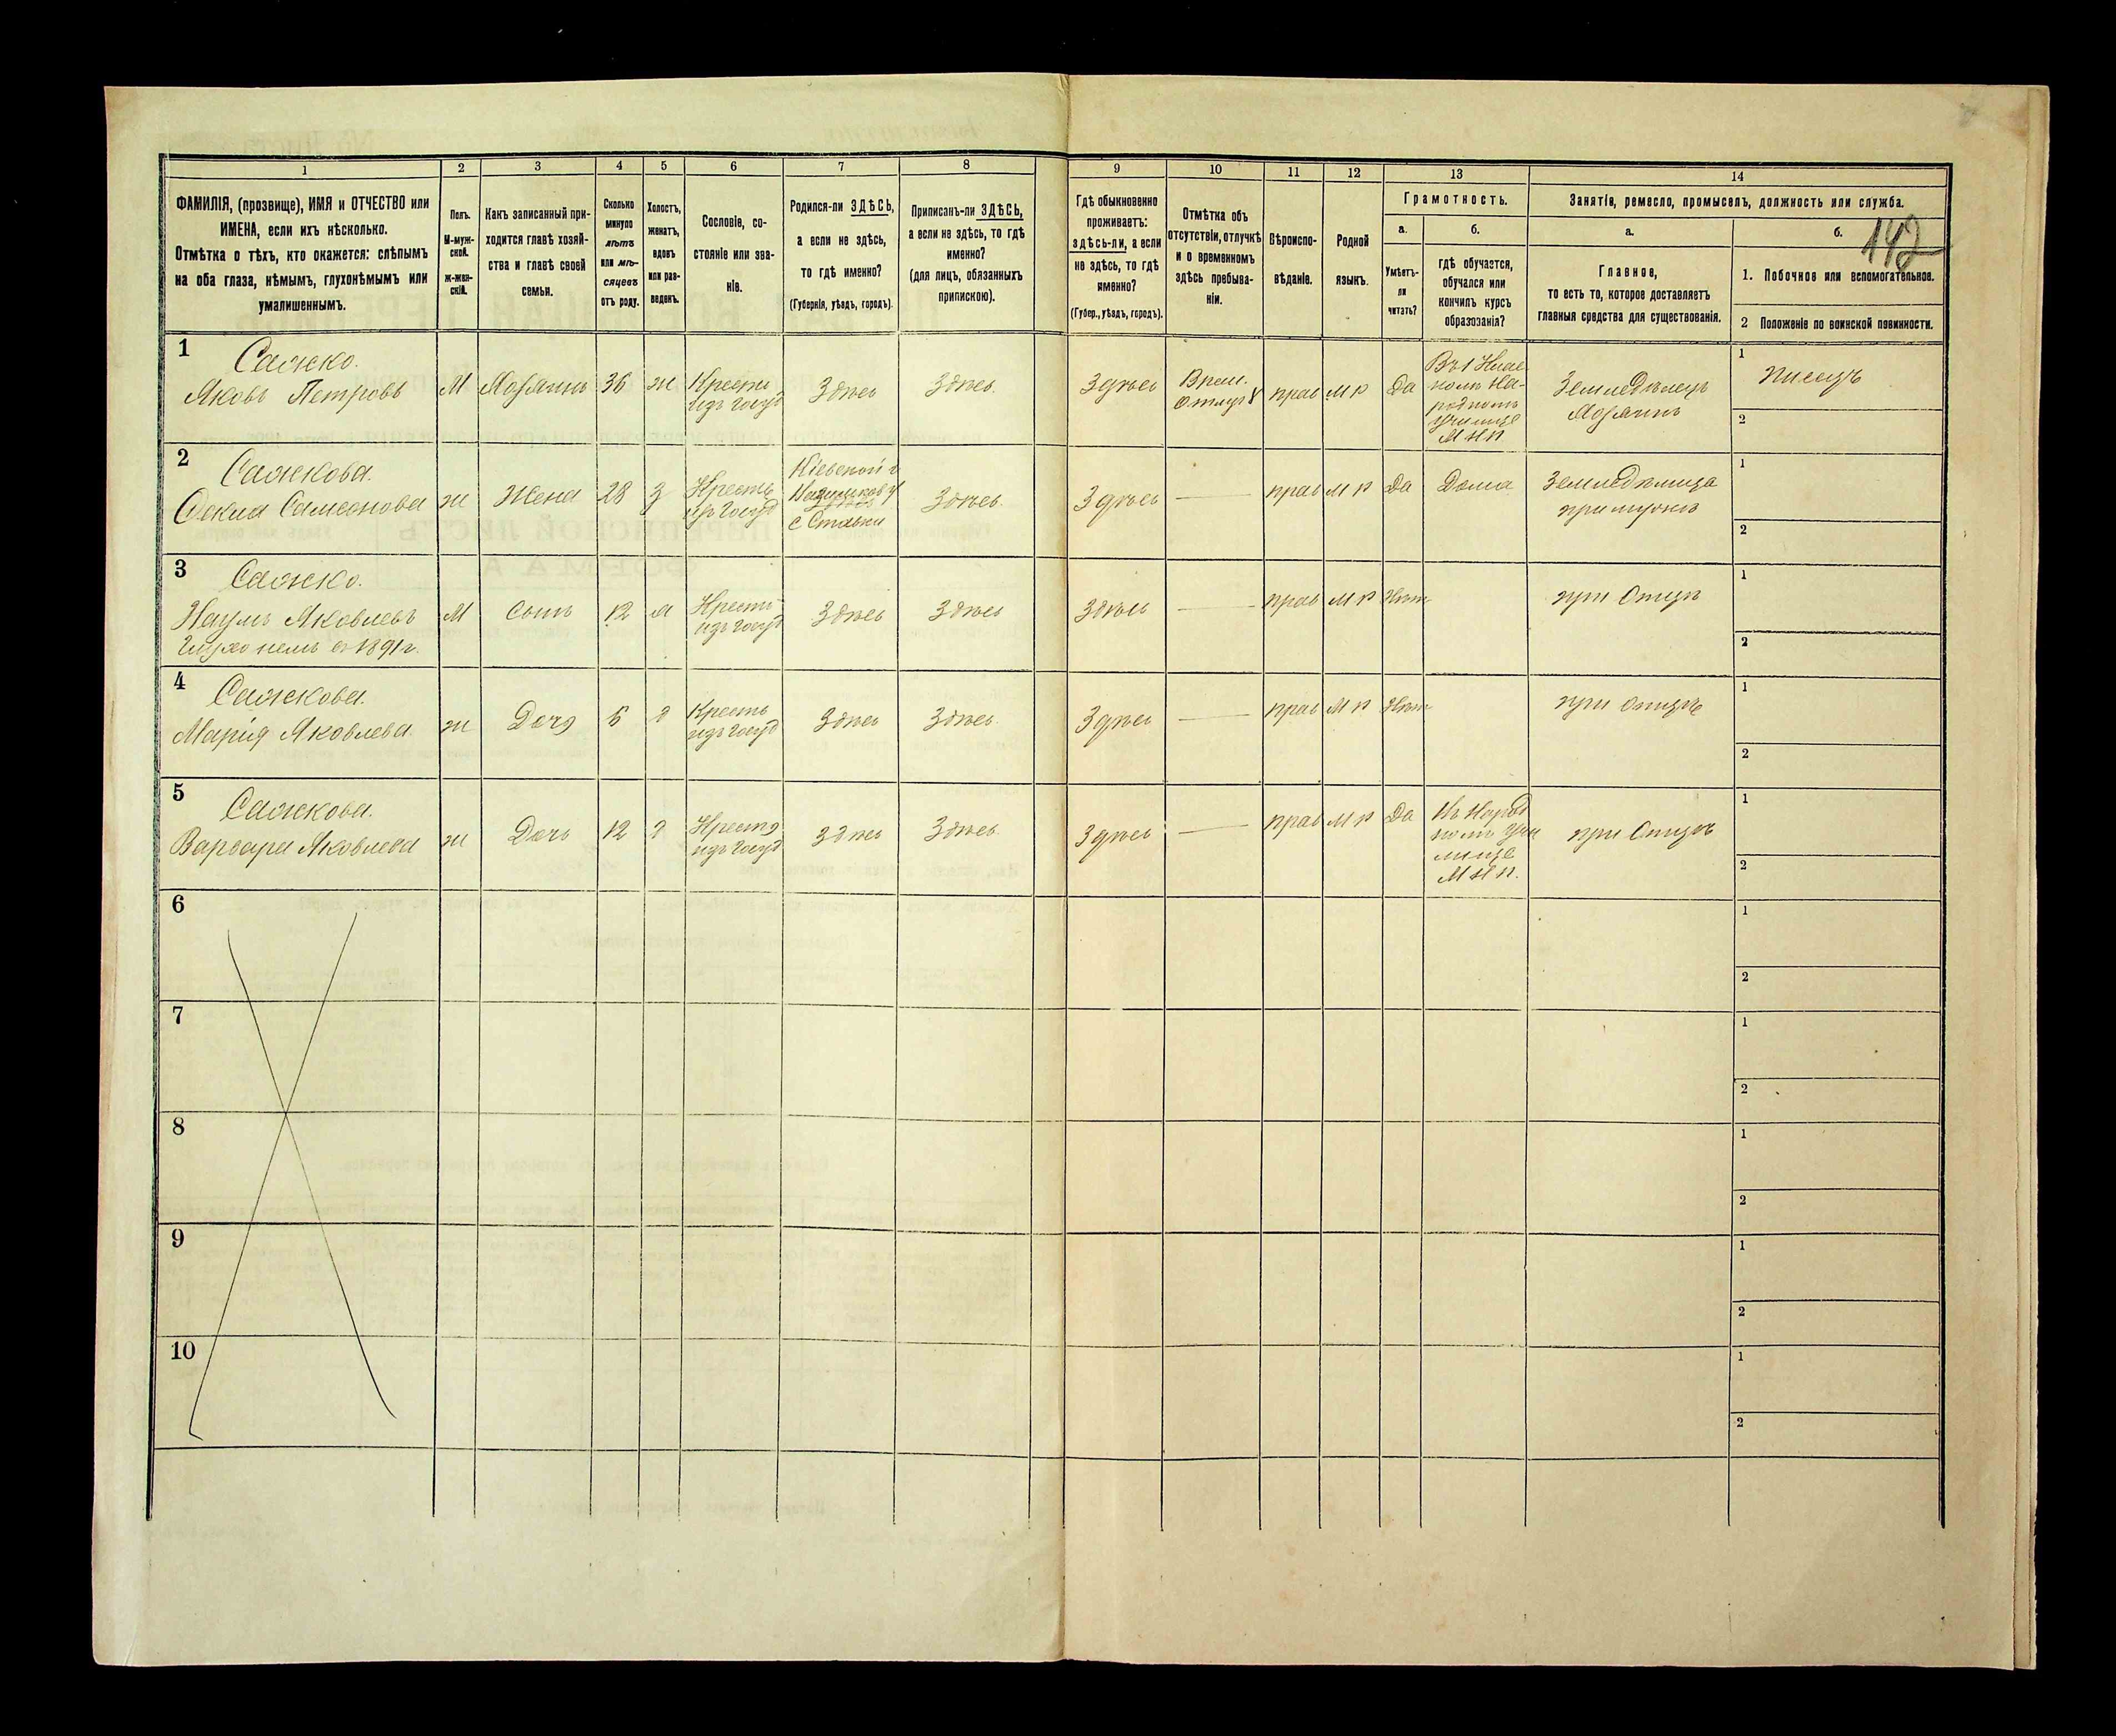 1
2
3
4
5
6
7
8
9
10
11
12
13
14
ФАМИЛІЯ, (прозвище), ИМЯ и ОТЧЕСТВО или
ИМЕНА, если ихъ нѣсколько.
Отмѣтка о тѣхъ, кто окажется: слѣпымъ
на оба глаза, нѣмымъ, глухонѣмымъ или
умалишеннымъ.
Полъ.
М-муж-
ской.
ж-жен-
скій.
Какъ записанный при-
ходится главѣ хозяй-
ства и главѣ своей
семьи.
Сколько
минуло
лѣтъ
или мѣ-
сяцевъ
отъ роду.
Холостъ,
женатъ,
вдовъ
или раз-
веденъ.
Сословіе, со-
стояніе или зва-
ніе.
Родился-ли ЗДѢСЬ,
а если не здѣсь,
то гдѣ именно?
(Губернія, уѣздъ, городъ).
Приписанъ-ли ЗДѢСЬ,
а если не здѣсь, то гдѣ
именно?
(для лицъ, обязанныхъ
припискою).
Гдѣ обыкновенно
проживаетъ:
здѣсь-ли, а если
не здѣсь, то гдѣ
именно?
(Губер., уѣздъ, городъ).
Отмѣтка объ
отсутствіи, отлучкѣ
и о временномъ
здѣсь пребыва-
ніи.
Вѣроиспо-
вѣданіе.
Родной
языкъ.
Грамотность.
а.
Умѣетъ-
ли
читать?
б.
гдѣ обучается,
обучался или
кончилъ курсъ
образованія?
Занятіе, ремесло, промыселъ, должность или служба.
а.
Главное,
то есть то, которое доставляетъ
главныя средства для существованія.
б.
142
1. Побочное или вспомогательное.
2 Положеніе по воинской повинности.
1
Сажко.
Яковъ Петровъ
М
Хозяинъ
36
ж
Крестн
изъ госуд
Здѣсь
Здѣсь.
Здѣсь
Врем.
отлуч
прав
М р
Да
Въ 1 Клас
номъ На-
родномъ
Училище
М Н П
Земледѣлецъ
Хозяинъ
1
писецъ
2
2
Сажкова.
Самсонова
ж
Жена
28
З
Кресть
изъ госуд
Кіевской г
с Ставки
Здѣсь.
Здѣсь
прав
М р
Да
Дома
Земледѣлица
при мужѣ
1
2
3
Сажко.
Наумъ Яковлевъ
Глухонемъ съ 1891 г.
М
Сынъ
12
Кресть
изъ госуд
Здѣсь
Здѣсь
Здѣсь
прав
М р
Нѣт
при Отцѣ
1
2
4
Сажкова.
Марія Яковлева
ж
Дочь
6
д
Кресть
изъ госуд
Здѣсь
Здѣсь.
Здѣсь
прав
М р
Нѣт
при отцѣ
1
2
5
Сажкова.
Варвара Яковлева
ж
Дочь
12
д
Крестя
изъ госуд
Здѣсь
Здѣсь.
Здѣсь
прав
М р
Да
Въ Народ
номъ Учи
лище
М Н П.
при Отцѣ
1
2
6
1
2
7
1
2
8
1
2
9
1
2
10
1
2